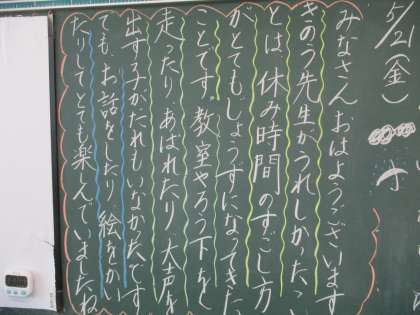 5/21(金)
みなさん おはようございます
きのう先生がうれしかったこ
とは、休み時間のすごし方
がとてもじょうずになってきた
ことです。教室やろう下をく
走ったり あばれたり 大声を
出す子がだれもいなかったです
ても お話をしたり 絵をかい
たりして とても楽んでいましたね